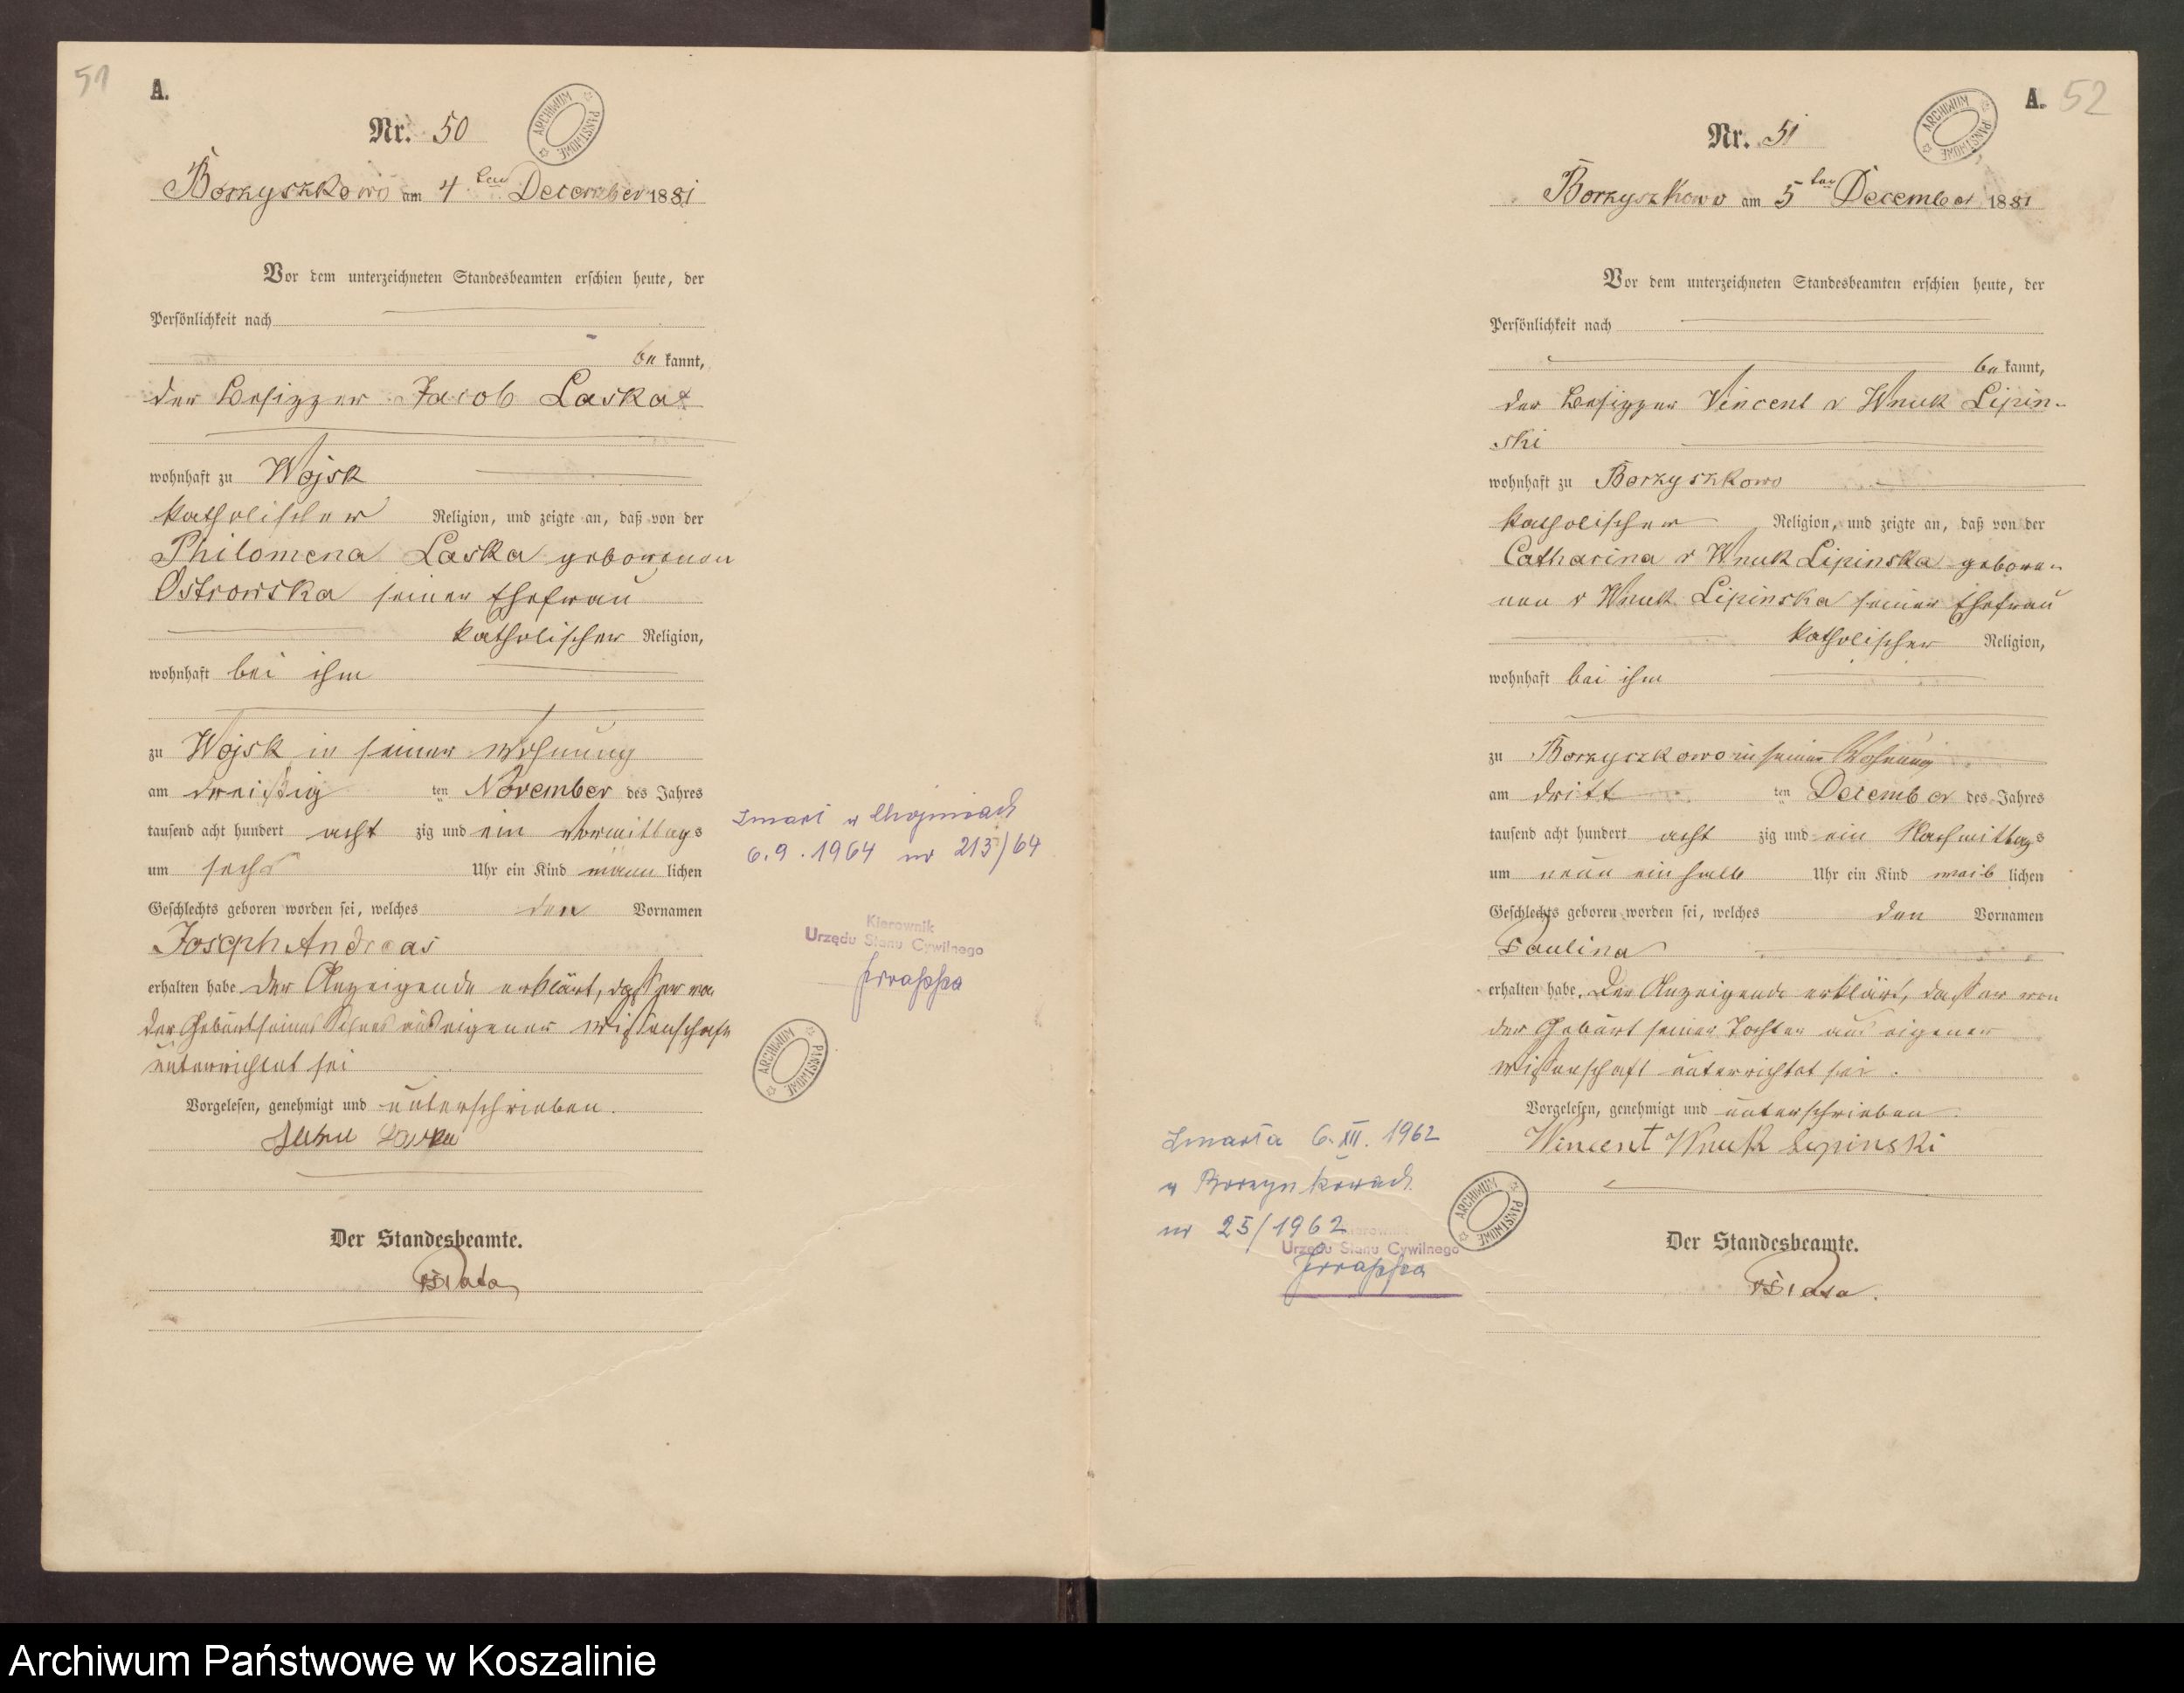 51
A.
Nr. 50
ARCHIWUM PAŃSTWOWE
Borzyszkowo am 4 ten December 1881
Vor dem unterzeichneten Standesbeamten erschien heute, der
Persönlichkeit nach
be kannt,
der Besizzer Jacob Laska
wohnhaft zu Wojsk
katholischer Religion, und zeigte an, daß von der
Philomena Laska geborenen
Ostrowska seiner Ehefrau
katholischer Religion,
wohnhaft bei ihm
zu Wojsk in seiner Wohnung
am dreißig ten November des Jahres
tausend acht hundert acht zig und ein Vormittags
um sechs Uhr ein Kind männ lichen
Geschlechts geboren worden sei, welches den Vornamen
Joseph Andreas
erhalten habe. Der Anzeigende erklärt, daß er von
der Geburt seines Sohnes aus eigener Wissenschaft
unterrichtet sei
Vorgelesen, genehmigt und unterschrieben.
Laska
Der Standesbeamte.
Zmarł w Chojnicach
6.9.1964 nr 213/64
Kierownik
Urzędu Stanu Cywilnego
ARCHIWUM PAŃSTWOWE
A. 52
Nr. 51
ARCHIWUM PAŃSTWOWE
Borzyszkowo am 5 ten December 1881
Vor dem unterzeichneten Standesbeamten erschien heute, der
Persönlichkeit nach
be kannt,
der Besizzer Vincent v Wnuk Lipin-
ski
wohnhaft zu Borzyszkowo
katholischer Religion, und zeigte an, daß von der
Catharina v Wnuk Lipinska gebore-
nen v Wnuk Lipinska seiner Ehefrau
katholischer Religion,
wohnhaft bei ihm
zu Borzyszkowo in seiner Wohnung
am dritt ten December des Jahres
tausend acht hundert acht zig und ein Nachmittags
um neun ein halb Uhr ein Kind weib lichen
Geschlechts geboren worden sei, welches den Vornamen
Paulina
erhalten habe. Der Anzeigende erklärt, daß er von
der Geburt seiner Tochter aus eigener
Wissenschaft unterrichtet sei.
Vorgelesen, genehmigt und unterschrieben.
Wincent Wnuk Lipinski
Der Standesbeamte.
Zmarła 6.XII.1962
w Borzyszkowach
nr 25/1962
Kierownik
Urzędu Stanu Cywilnego
ARCHIWUM PAŃSTWOWE
Archiwum Państwowe w Koszalinie